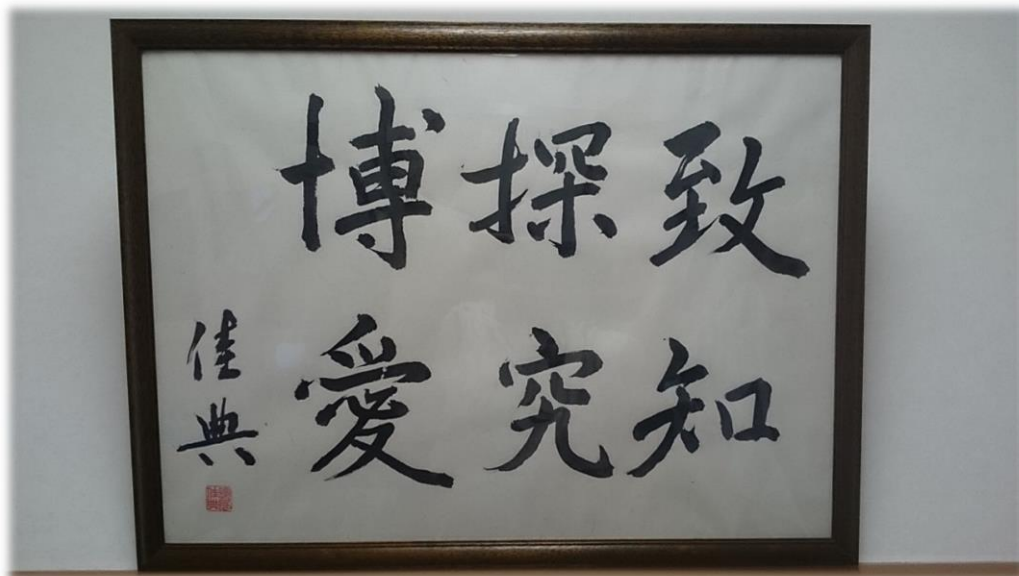 致知
探究
博愛
佳典